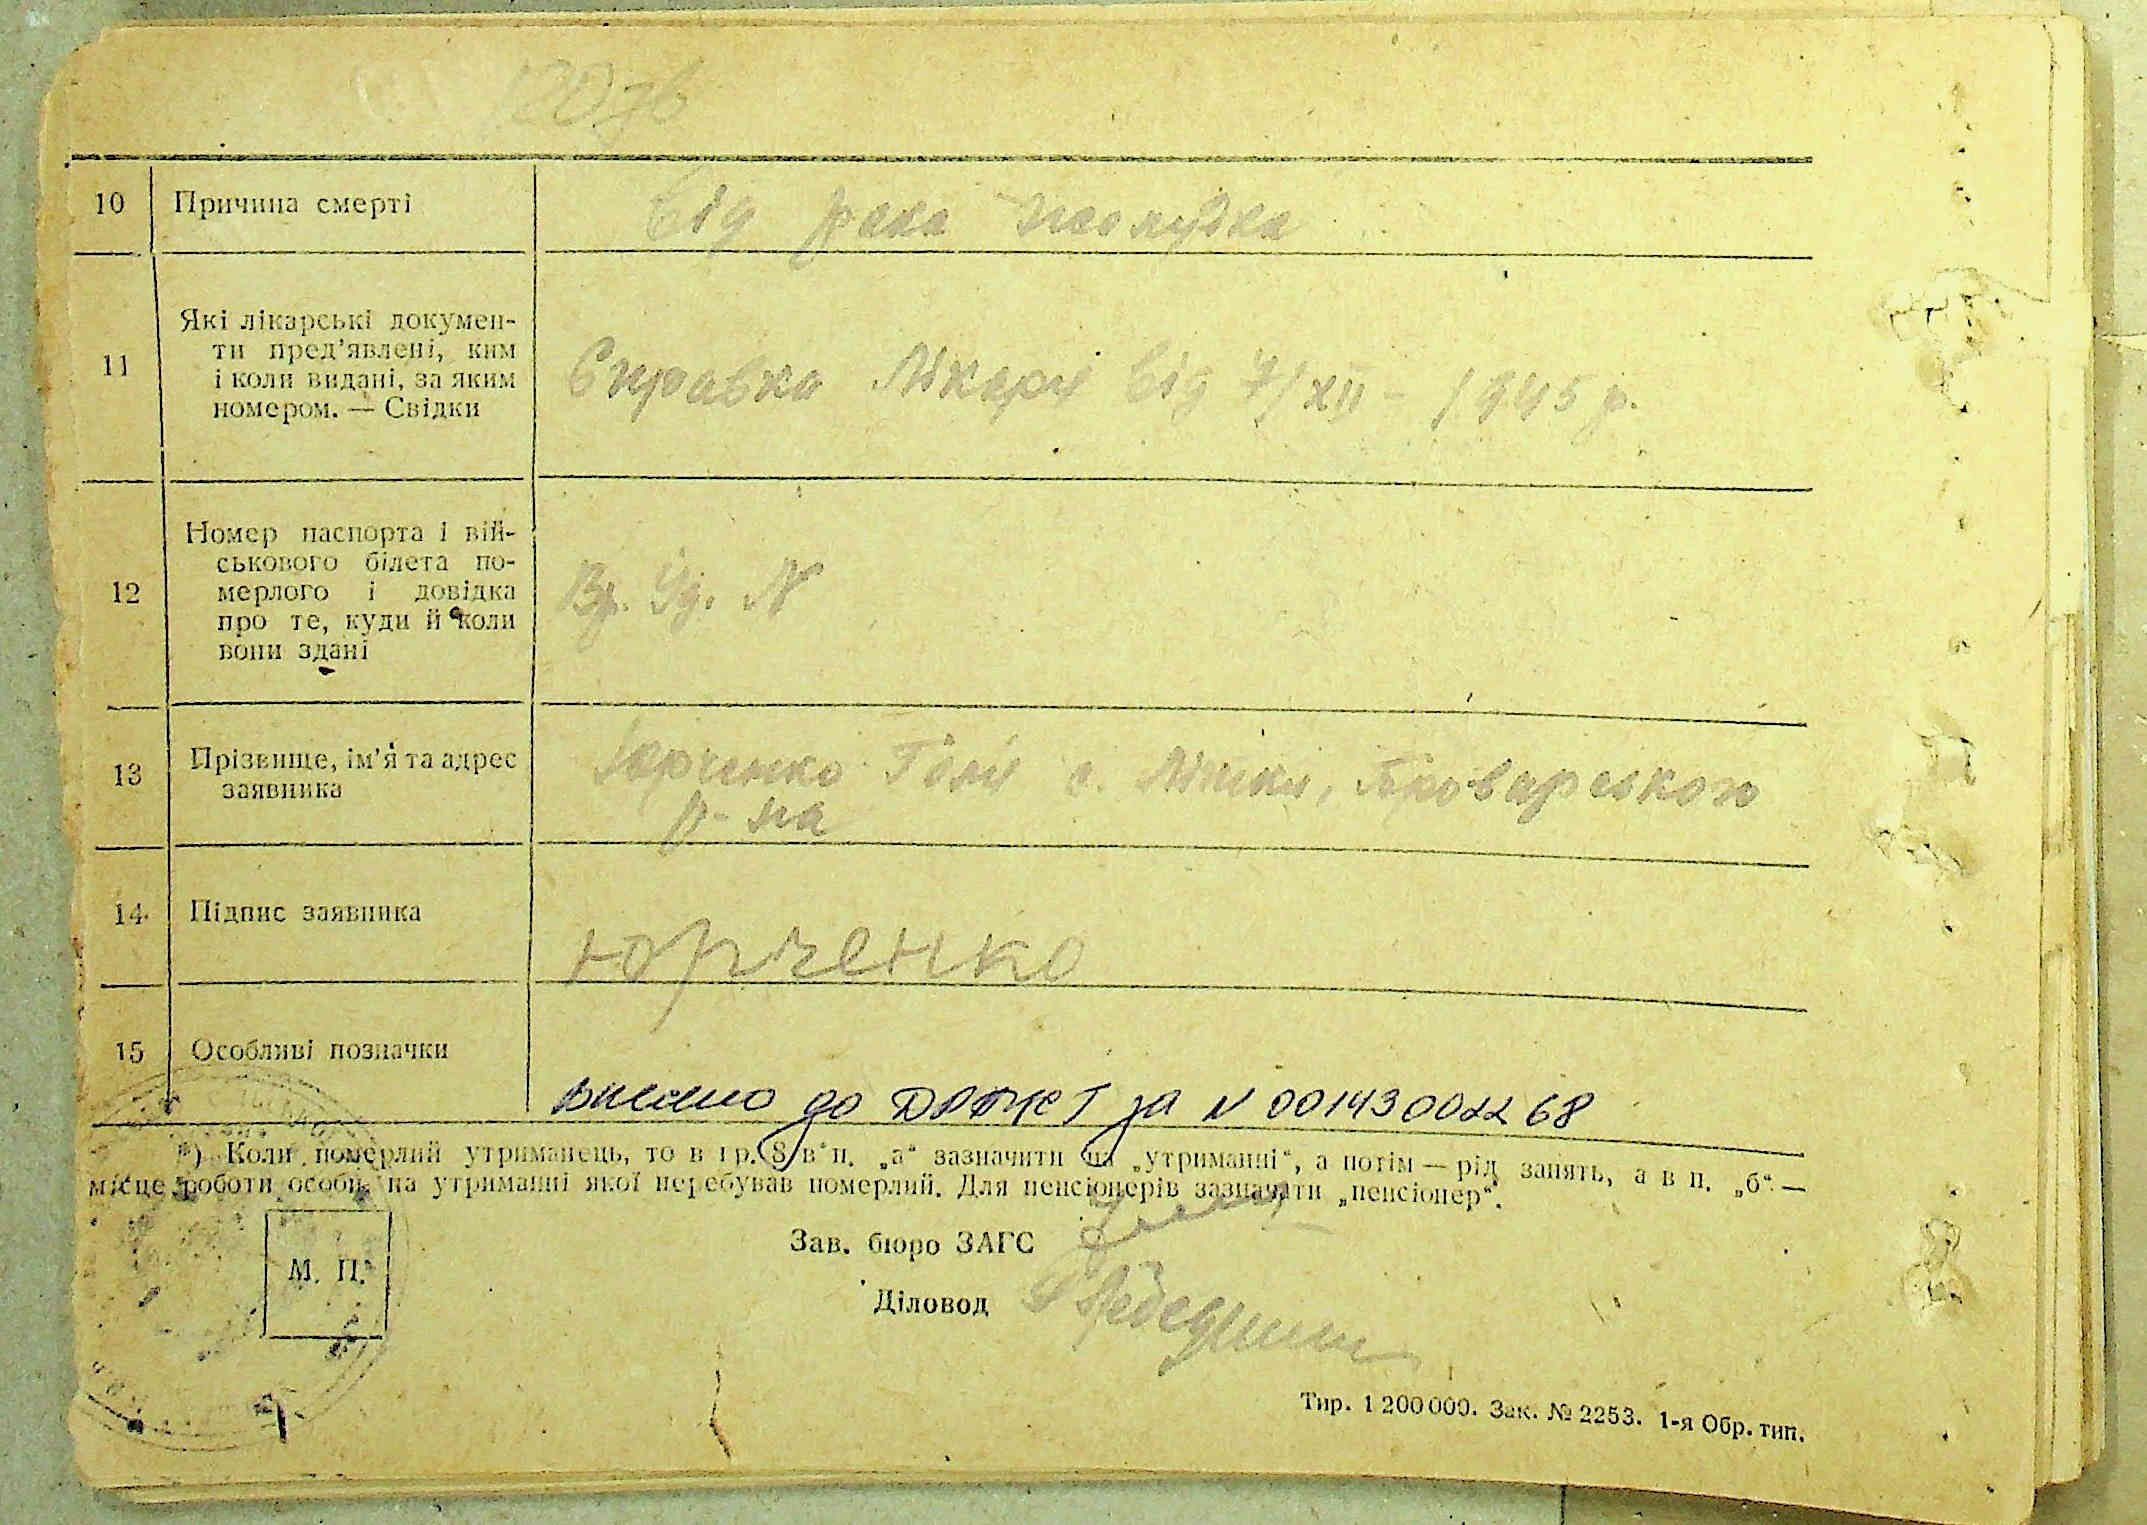 10 Причина смерті від рака жолудка
11 Які лікарські докумен-
ти пред'явлені, ким
і коли видані, за яким
номером. — Свідки
Справка Лікаря від 7/XII - 1945 р.
12 Номер паспорта і вій-
ськового білета по-
мерлого і довідка
про те, куди й коли
вони здані
Вр. Уд. N
13 Прізвище, ім'я та адрес
заявника
Юрченко с. Літки, Броварського
р-на
14 Підпис заявника
Юрченко
15 Особливі позначки
Внесено до ДРАЦСГ за N 00143002268
*) Коли померлий утриманець, то в гр. 8 в п. „а“ зазначити на „утриманні“, а потім — рід занять, а в п. „б“ —
місце роботи особи, на утриманні якої перебував померлий. Для пенсіонерів зазначати „пенсіонер“.
М. П.
Зав. бюро ЗАГС
Діловод
Тир. 1 200 000. Зак. № 2253. 1-я Обр. тип.